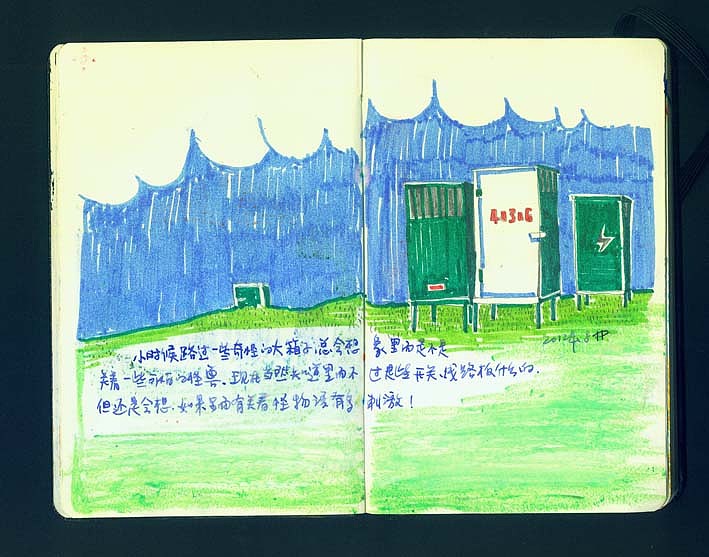 4 3 6
小时候路过一些奇怪的大箱子总会想象里面是不是
关着一些可怕的怪兽.现在当然知道里面不过是些开关、线路板什么的.
但还是会想.如果里面有关着怪物该有多刺激!